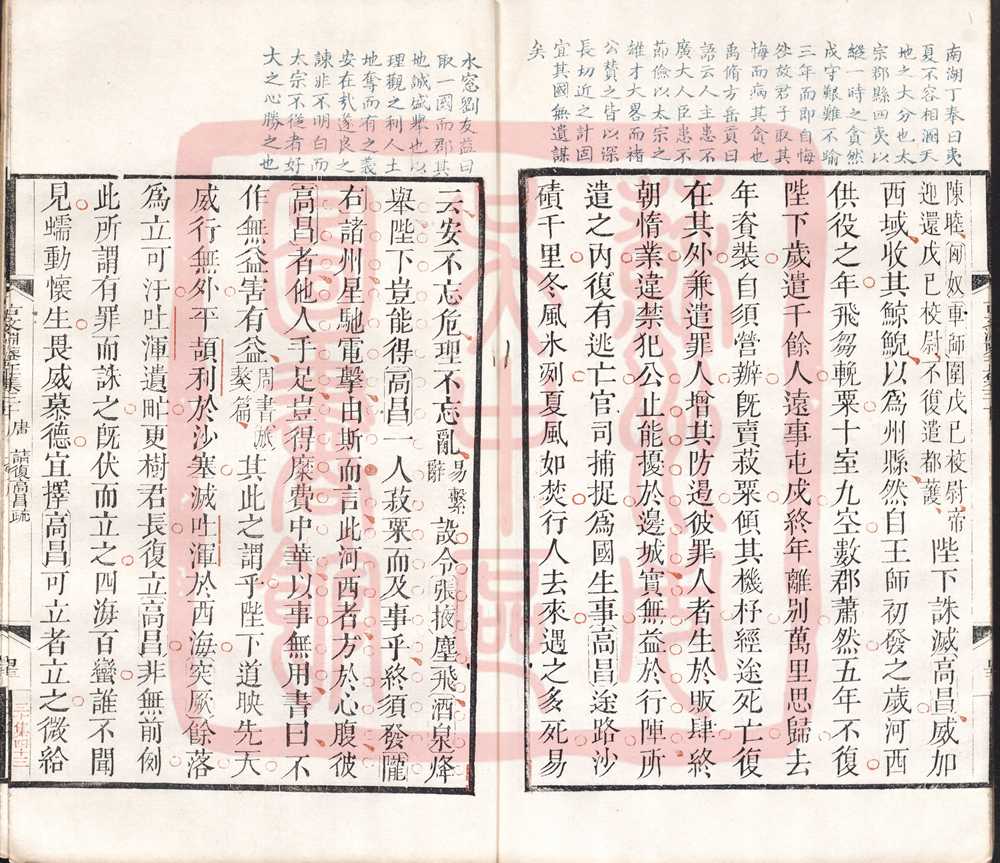 南湖丁奉曰夷
夏不容相溷天
地之大分也太
宗郡縣四夷以
縱一時之貪然
戍守艱難不踰
三年而即自悔
咎故君子取其
悔而病其貪也
禹脩方岳貢曰
語云人主患不
廣大人臣患不
節儉以太宗之
雄才大畧而褚
公賛之皆以深
長切近之計固
宜其國無遺謀
矣
陳睦匈奴車師圍戊巳校尉帝
迎還戊巳校尉不復遣都護
陛下誅滅高昌威加
西域收其鯨鯢以爲州縣然自王師初發之歲河西
供役之年飛芻輓粟十室九空數郡蕭然五年不復
陛下歲遣千餘人遠事屯戍終年離别萬里思歸去
年賫裝自須營辦旣賣菽粟傾其機杼經途死亡復
在其外兼遣罪人增其防遏彼罪人者生於販肆終
朝惰業違禁犯公止能擾於邊城實無益於行陣所
遣之内復有逃亡官司捕捉爲國生事高昌途路沙
磧千里冬風氷冽夏風如焚行人去來遇之多死易
水窓劉友益曰
取一國而郡其
地誠盛舉也以
理觀之利人土
地奪而有之義
安在㢤遂良之
諫非不明白而
太宗不從者好
大之心勝之也
云安不忘危理不忘亂
易繫
辭
設令張掖塵飛酒泉烽
舉陛下豈能得高昌一人菽粟而及事乎終須發隴
右諸州星馳電擊由斯而言此河西者方於心腹彼
高昌者他人手足豈得糜費中華以事無用書曰不
作無益害有益
周書旅
獒篇
其此之謂乎陛下道映先天
威行無外平頡利於沙塞滅吐渾於西海突厥餘落
爲立可汗吐渾遺甿更樹君長復立高昌非無前例
此所謂有罪而誅之旣伏而立之四海百蠻誰不聞
見蠕動懷生畏威慕德宜擇高昌可立者立之徵給
唐
請復高昌疏